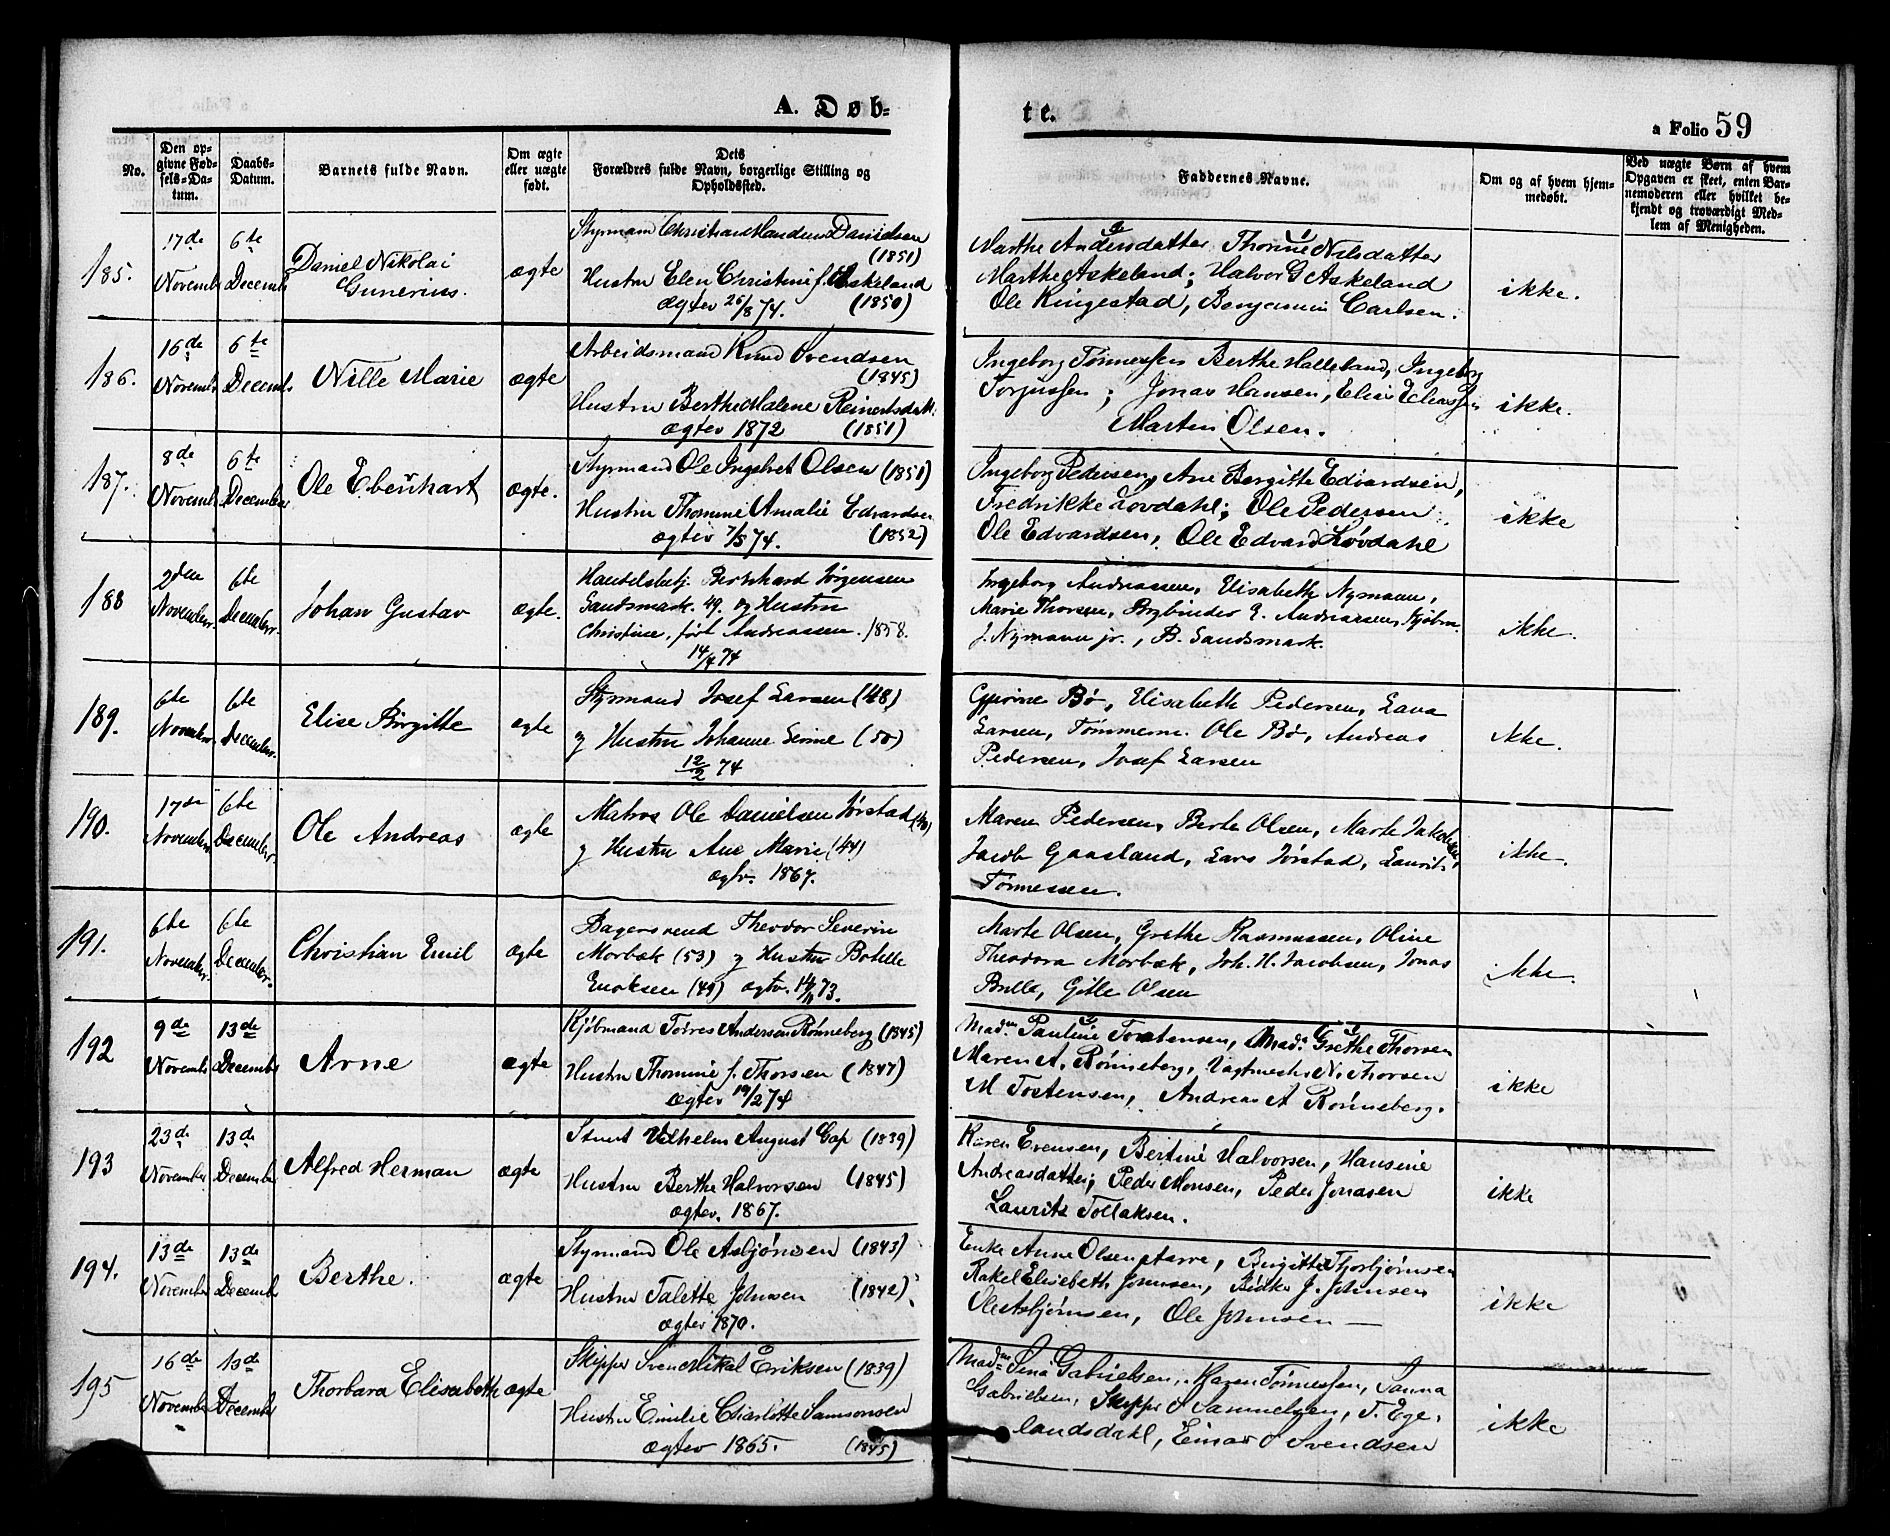 A. Døb-
te.
a Folio 59
No.
Den op-
givne Fød-
sels-Da-
tum.
Daabs-
Datum.
Barnets fulde Navn.
Om ægte
eller uægte
født.
Dets
Forældres fulde Navn, borgerlige Stilling og
Opholdssted.
Faddernes Navne.
Om og af hvem hjem-
medøbt.
Ved uægte Børn af hvem
Opgaven er skeet, enten Bar-
nemoderen eller hvilket be-
kjendt og troværdigt Med-
lem af Menigheden.
185.
17de
November
6te
Decembr
Daniel Nikolai
Gunerius.
ægte
Styrmand Christian Danielsen
(1851)
Hustru Elen Christine f. Askeland
ægtev 26/8 74. (1850)
Marthe Andersdatter, Thorine Nilsdatter
Marthe Askeland; Halvor G Askeland
Ole Ringestad, Benjamin Carlsen.
ikke.
186.
16de
Novembr
6te
Decembr
Nille Marie
ægte
Arbeidsmand Knud Svendsen
(1845)
Hustru Berthe Malene Reinertsdatt.
ægtev 1872 (1851)
Ingeborg Tønnessen Berthe Halleland, Ingeborg
Torjussen; Jonas Hansen, Elias Eliassen
Martin Olsen.
ikke.
187.
8de
Novembr
6te
December
Ole Ebenhart
ægte.
Styrmand Ole Ingebret Olsen (1851)
Hustru Thomine Amalie Edvardsen
ægtev 7/5 74. (1852)
Ingeborg Pedersen, Ane Bergitte Edvardsen,
Fredrikke Løvdahl; Ole Pedersen
Ole Edvardsen, Ole Edvard Løvdahl
ikke
188
2den
November.
6te
December.
Johan Gustav
ægte.
Handelsbetj. Bernhard Jørgensen
Sandsmark. 49. og Hustru
Christine, født Andreassen. 1858.
14/4 74
Ingeborg Andreassen, Elisabeth Nymann,
Marie Thorsen, Bogbinder E. Andreassen, Kjøbm.
J. Nymann jr., B. Sandsmark.
ikke.
189.
6te
November.
6te
December.
Elise Birgitte
ægte
Styrmand Josef Larsen (48)
og Hustru Johanne Serine (50)
12/2 74
Gjerine Bø, Elisabeth Pedersen, Lava
Larsen, Tømmerm. Ole Bø, Andreas
Pedersen, Josef Larsen
ikke.
190.
17de
November.
6te
December.
Ole Andreas
ægte
Matros Ole Danielsen Jørstad (40)
og Hustru Ane Marie (44)
ægtv. 1867.
Maren Pedersen, Berte Olsen, Marte Jakobsen,
Jacob Gaasland, Lars Jørstad, Laurits
Tønnessen.
ikke.
191.
6te
November.
6te
December.
Christian Emil
ægte
Bagersvend Theodor Severin
Morbæk (53) og Hustru Botelle
Enoksen (49) ægtv. 14/11 73.
Marte Olsen, Grethe Rasmussen, Oline
Theodora Morbæk, Joh. H. Jacobsen, Jonas
Brelle, Gitle Olsen
ikke.
192
9de
Novembr
13de
Decembr
Arne
ægte
Kjøbmand Torres Andersen Rønneberg (1845)
Hustru Thomine f. Thorsen (1847)
ægtev 19/2 74
Madm Pauline Tostensen, Mad. Grethe Thorsen
Maren A. Rønneberg, Vagtmester N. Thorsen
M Tostensen, Andreas A Rønneberg.
ikke
193
23de
November
13de
December
Alfred Herman
ægte
Stuert Vilhelm August Gap (1839)
Hustru Berthe Halvorsen (1845)
ægtev. 1867.
Karen Evensen, Bertine Halvorsen, Hansine
Andreasdatter; Peder Monsen, Peder Jonasen
Laurits Tollaksen.
ikke
194.
13de
November
13de
December
Berthe.
ægte
Styrmand Ole Asbjørnsen (1843)
Hustru Talette Johnsen (1842)
ægtev 1870.
Enke Anne Olsen Aarre, Birgitte Thorbjørnsen
Rakel Elisebeth Johnsen, Bødker J. Johnsen
Ole Asbjørnsen, Ole Johnsen —
ikke
195
16de
November
13de
December
Thorbara Elisabeth
ægte
Skipper Svend Mikal Eriksen (1839)
Hustru Emilie Charlotte Samsonsen
ægtev 1865. (1845)
Madm Sina Gabrielsen, Maren Tønnessen, Sanna
Gabrielsen, Skipper S Samuelsen, T. Ege-
landsdahl, Einar S Svendsen
ikke